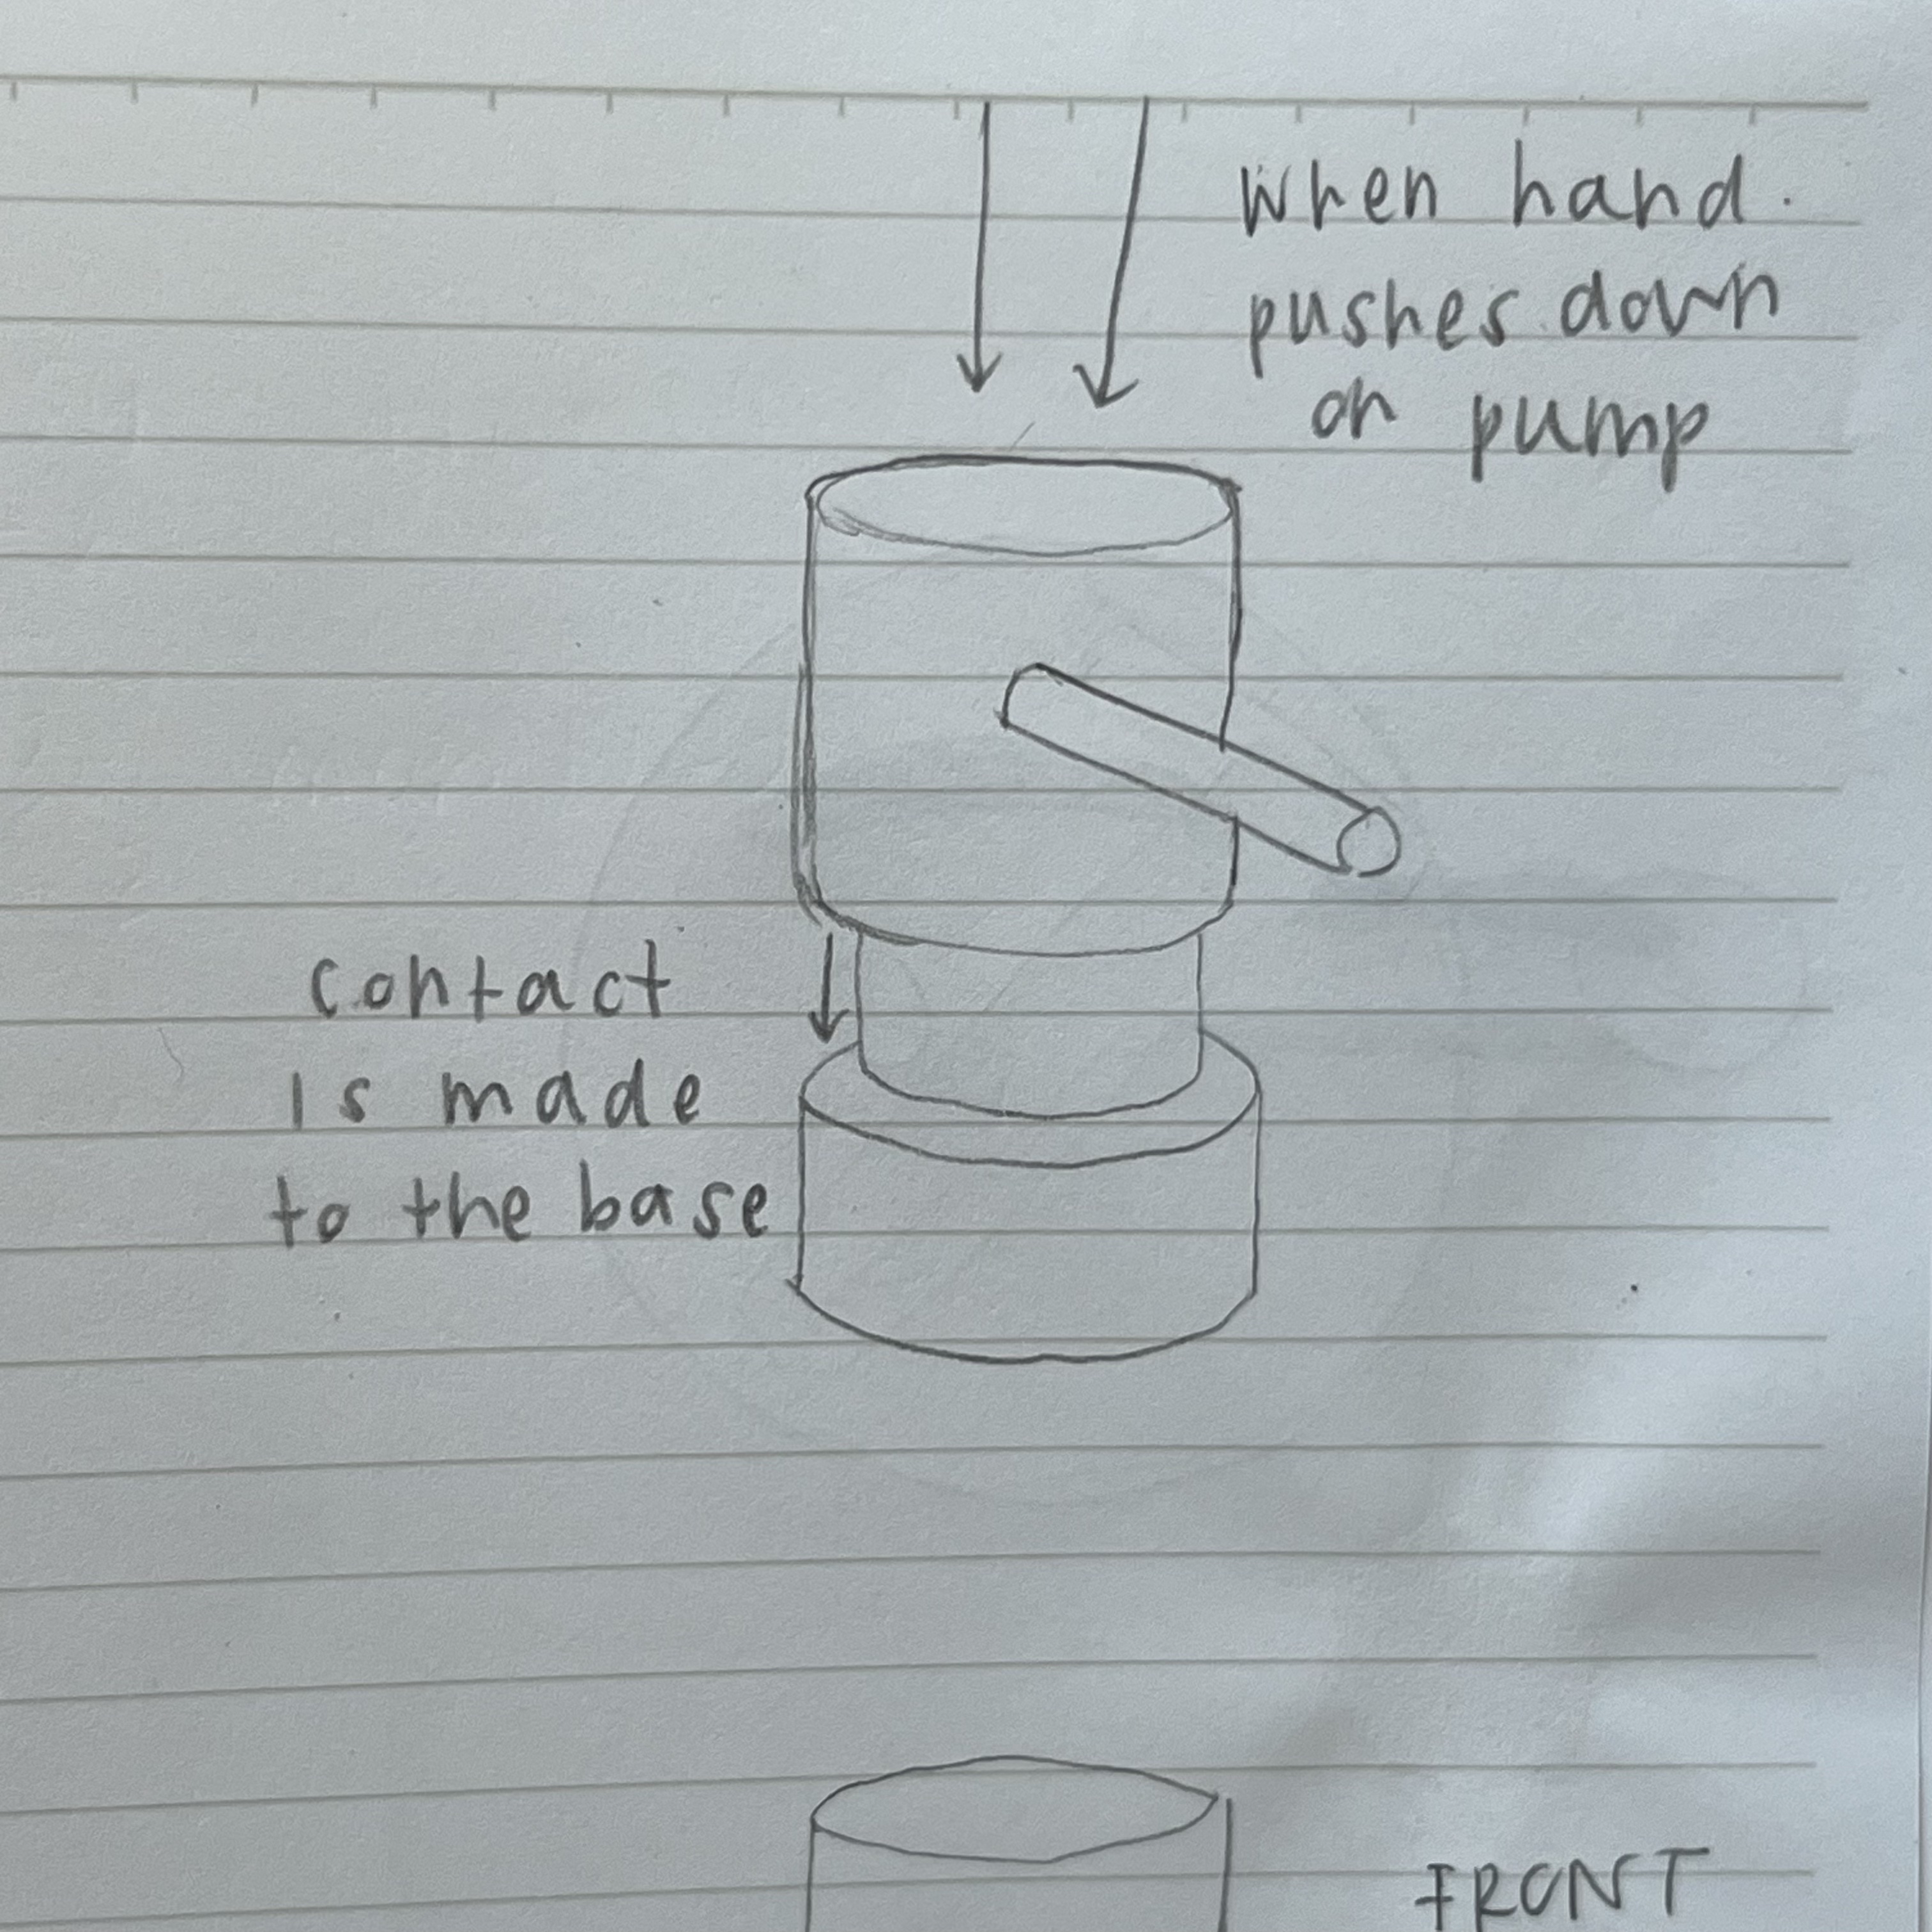 when hand
pushes down
on pump
contact
is made
to the base
FRONT